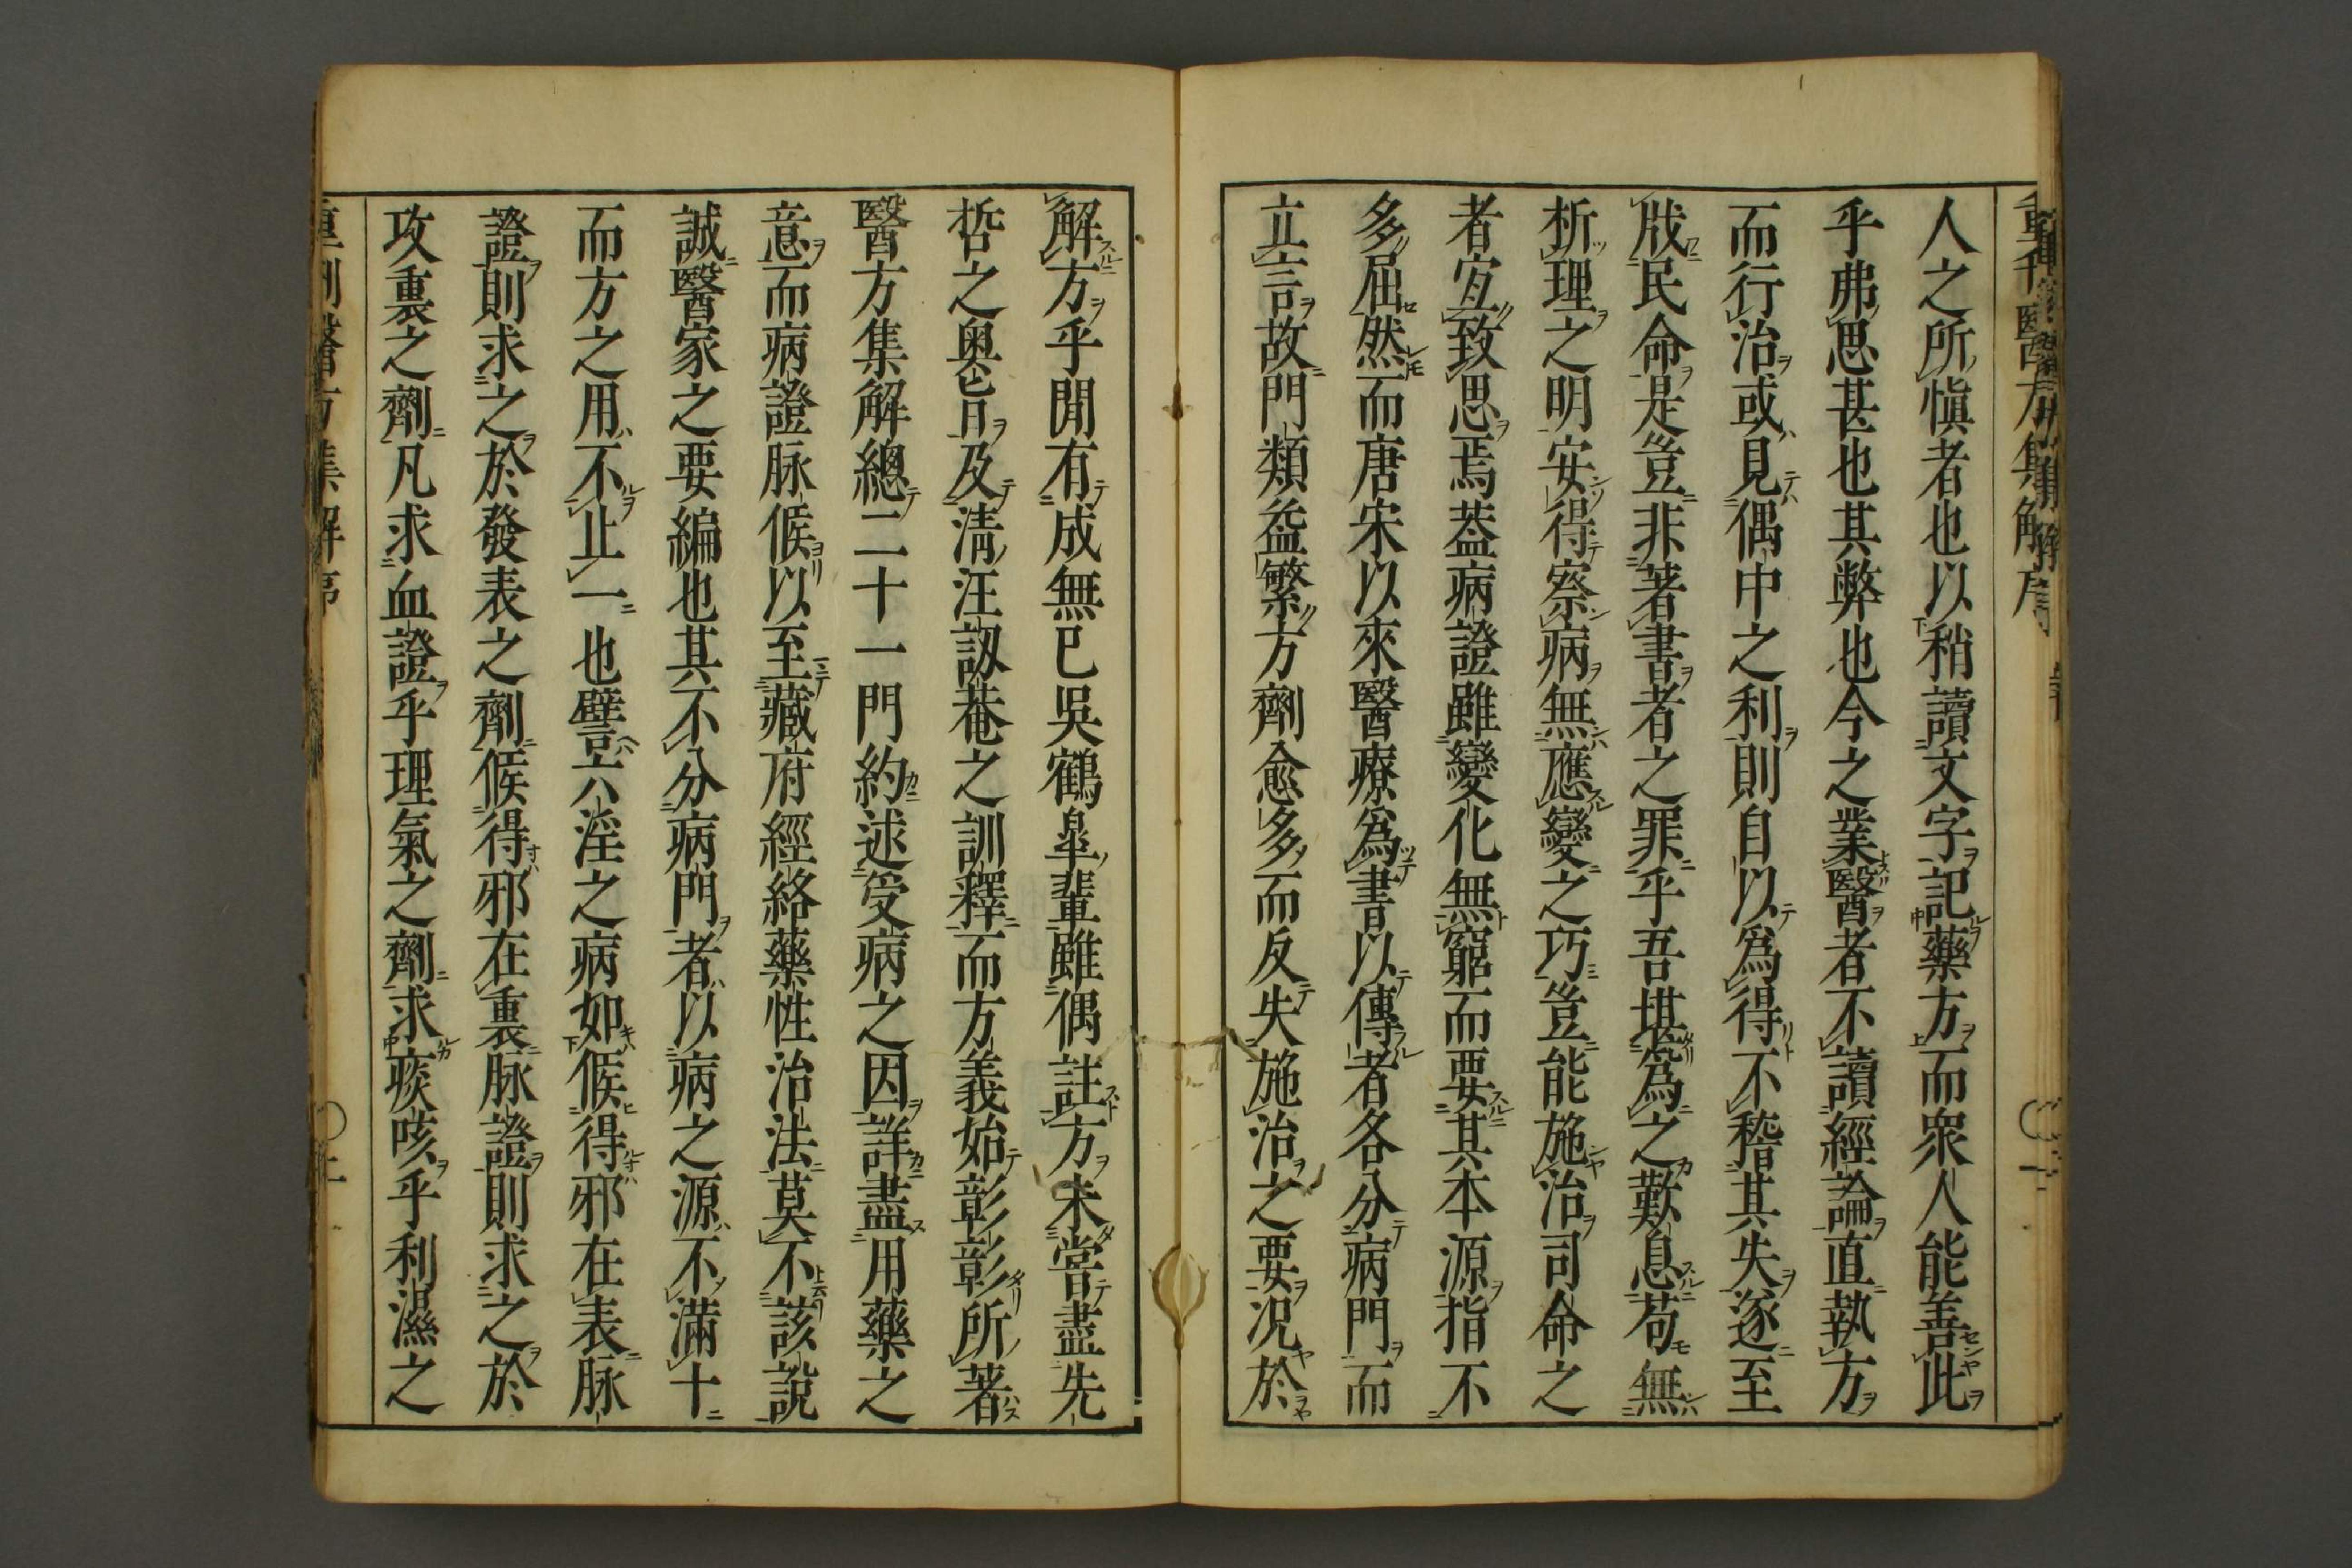 人之所愼者也以稍讀文字記藥方而衆人能善此
乎弗思甚也其弊也今之業醫者不讀經論直執方
而行治或見偶中之利則自以爲得不稽其失遂至
戕民命是豈非著書者之罪乎吾堪爲之歎息苟無
析理之明安得察病無應變之巧豈能施治司命之
者宜致思焉葢病證雖變化無窮而要其本源指不
多屈然而唐宋以來醫療爲書以傳者各分病門而
立言故門類益繁方劑愈多而反失施治之要況於
解方乎閒有成無已吳鶴臯輩雖偶註方未甞盡先
哲之奥㫖及淸汪訒菴之訓釋而方義始彰彰所著
醫方集解總二十一門約述受病之因詳盡用藥之
意而病證脉候以至藏府經絡藥性治法莫不該說
誠醫家之要編也其不分病門者以病之源不滿十
而方之用不止一也譬六淫之病如候得邪在表脉
證則求之於發表之劑候得邪在裏脉證則求之於
攻裏之劑凡求血證乎理氣之劑求痰咳乎利濕之